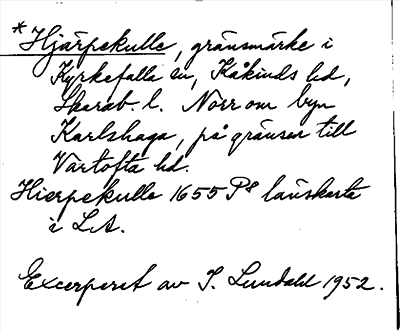 *Hjärpekulle, gränsmärke i
Kyrkefalla sn, Kåkinds hd,
Skarab. l. Norr om byn
Karlshaga, på gränsen till
Vartofta hd.
Hierpekulle 1655 P8 länskarta
i LA.
Excerperet av I. Lundahl 1952.